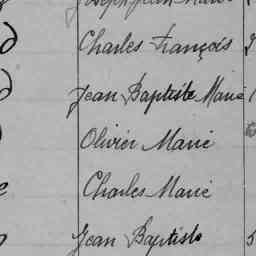 Joseph Jean Marie
Charles François
Jean Baptiste Marie
Olivier Marie
Charles Marie
Jean Baptiste